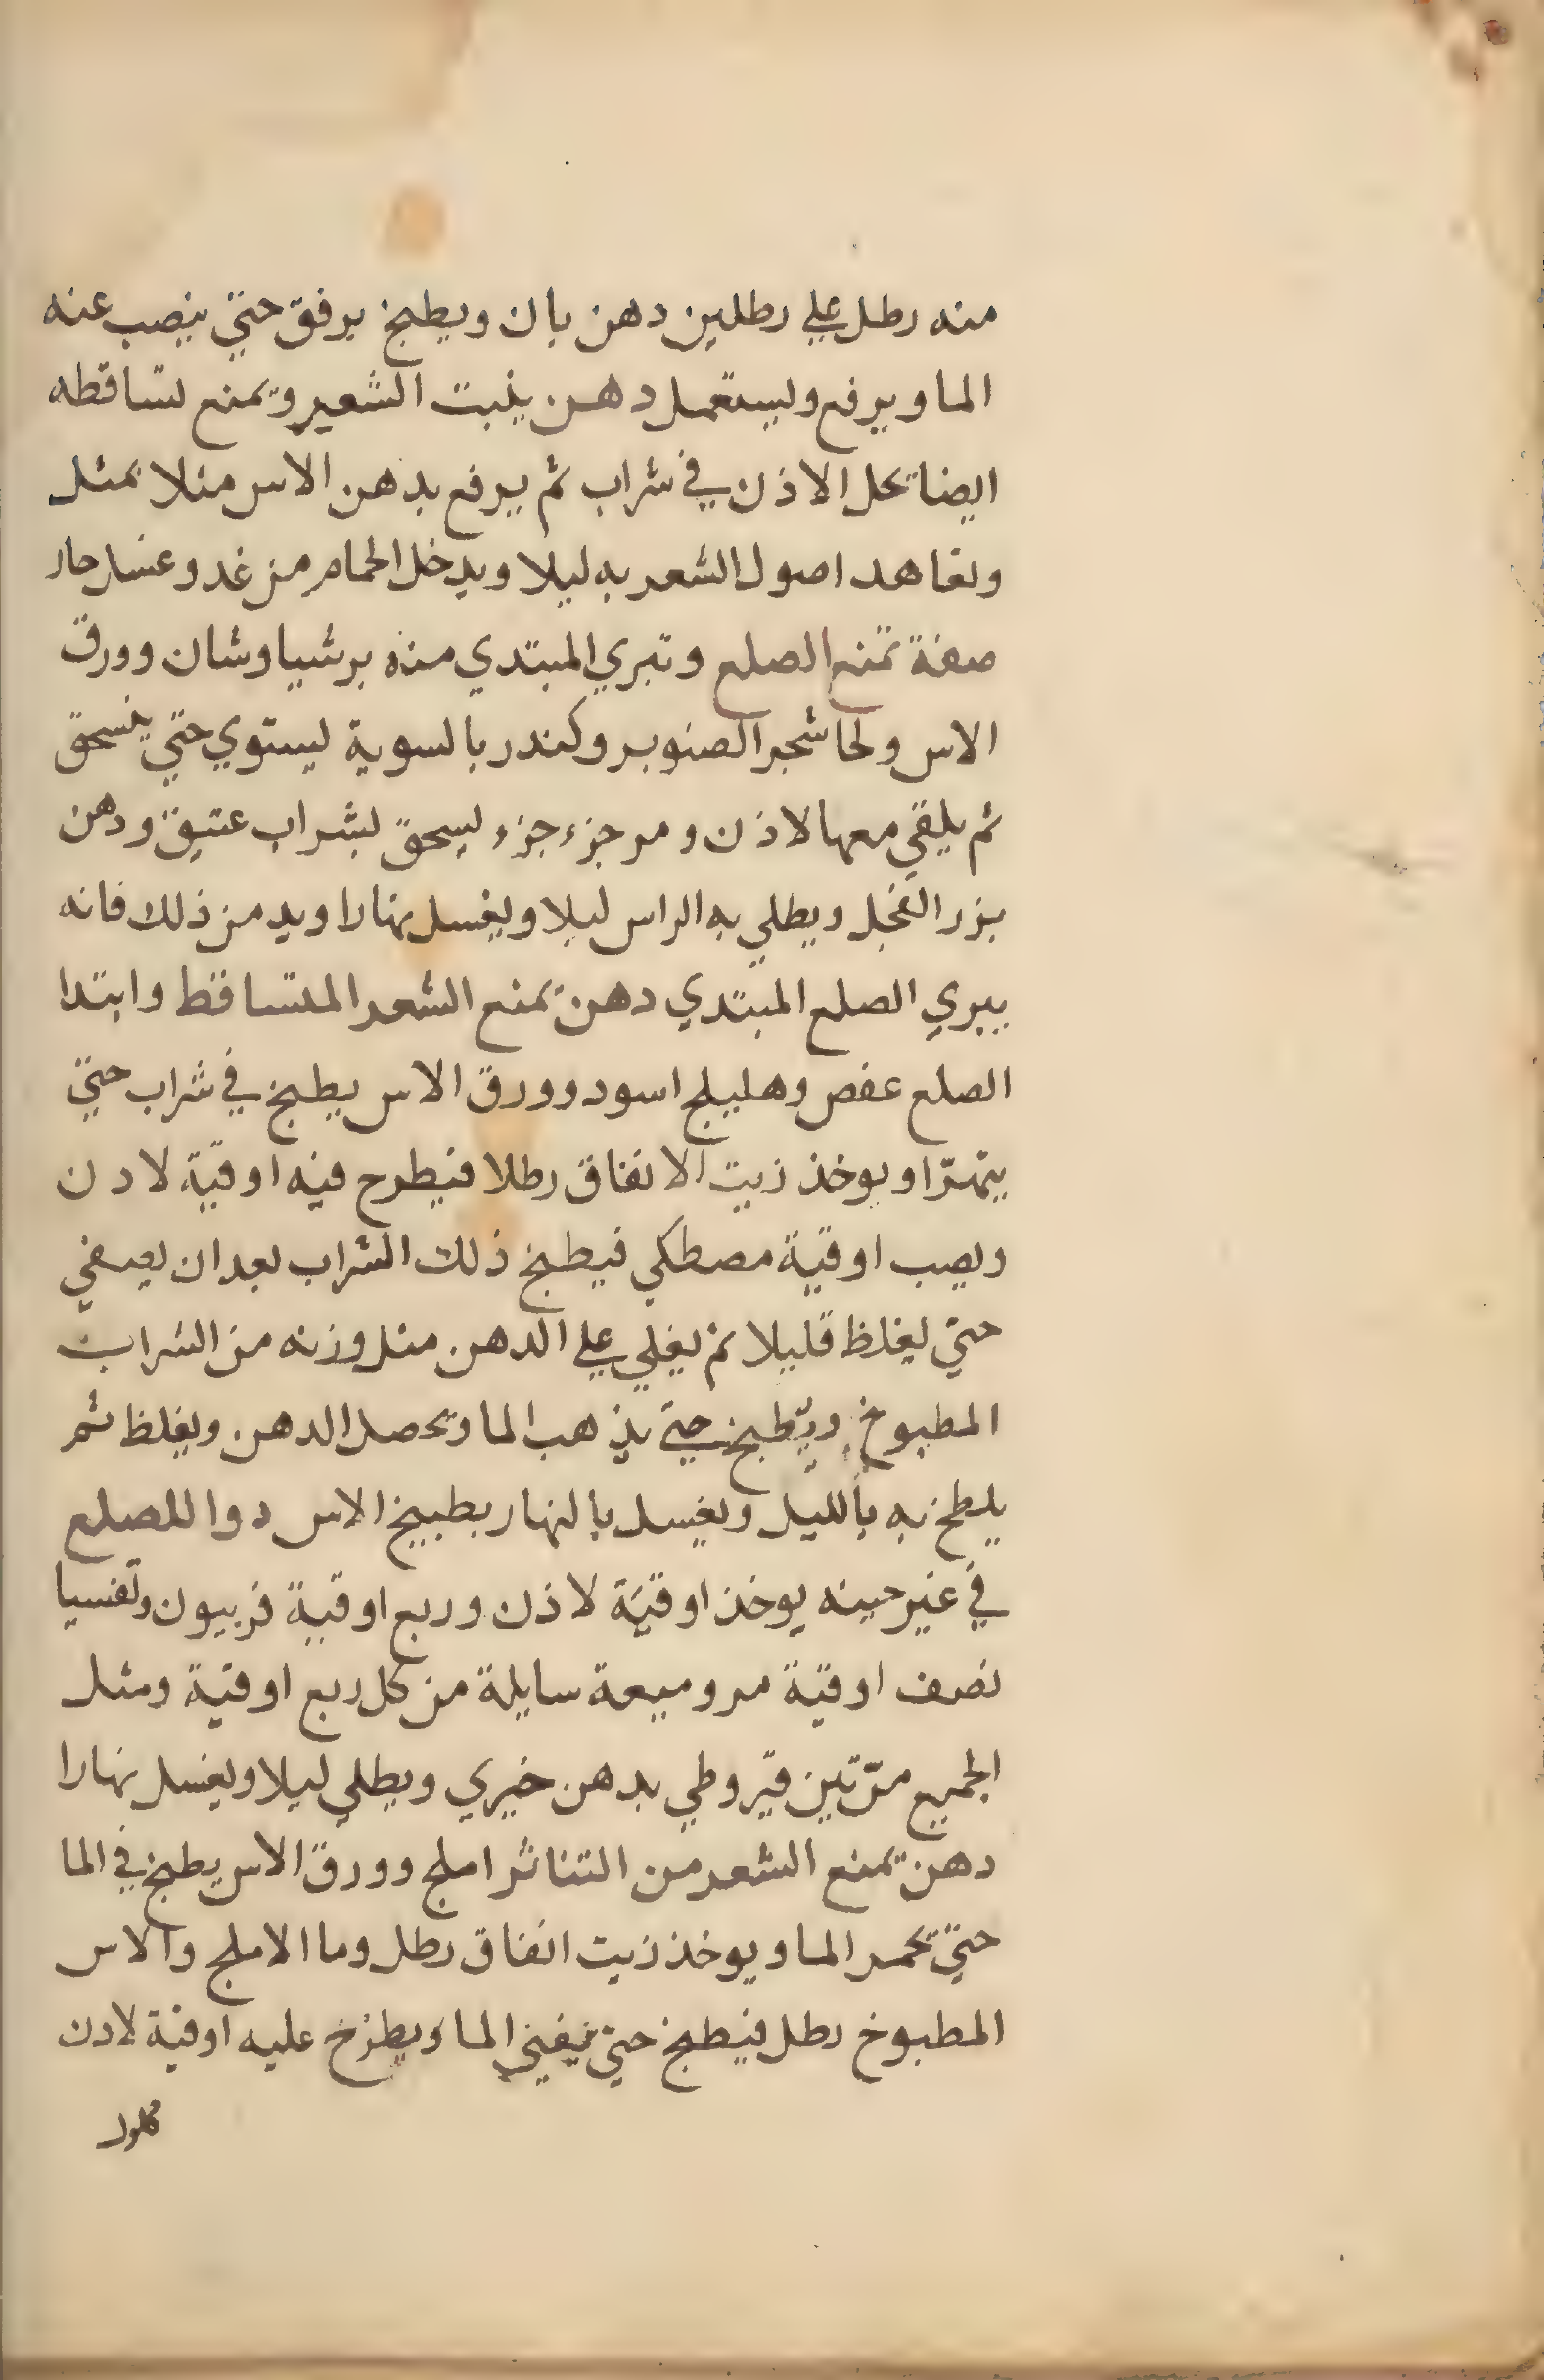 منه رطل علي رطلين دهن بان ويطبخ برفق حتي ينصب عنه
الما ويرفع ويستعمل دهن ينبت الشعير ويمنع تساقطه
ايضا يحل الاذن في شراب ثم يرفع بدهن الاس مثلا بمثل
وتعاهد اصول الشعر به ليلا ويدخل الحمام من غد وعسل حار
صفة تمنع الصلع وتبري المبتدي منه برشياوشان وورق
الاس ولحا شجر الصنوبر وكندر بالسوية ليستوي حتي ينسحق
ثم يلقي معها لاذن ومر جزء جزء يسحق بشراب عتيق ودهن
بزر الفجل ويطلي به الراس ليلا ويغسل نهارا ويدمن ذلك فانه
يبري الصلع المبتدي دهن يمنع الشعر المتساقط وابتدا
الصلع عفص وهليلج اسود وورق الاس يطبخ في شراب حتي
يتهرّا ويوخذ زيت الانفاق رطلا فيطرح فيه اوقيّة لادن
ويصب اوقية مصطكي فيطبخ ذلك الشراب بعد ان يصفي
حتي يغلظ قليلا ثم يغلي علي الدهن مثل وزنه من الشراب
المطبوخ ويطبخ حتي يذهب الما ويحصل الدهن ويغلظ ثم
يلطخ به بالليل ويغسل بالنهار بطبيخ الاس دوا للصلع
في غير حينه يوخذ اوقيّة لاذن وربع اوقية فربيون وتفسيا
نصف اوقية مر وميعة سايلة من كل ربع اوقية ومثل
الجميع مرّتين قيروطي بدهن خيري ويطلي ليلا ويغسل نهارا
دهن يمنع الشعر من التناثر املج وورق الاس يطبخ في الما
حتي يحمر الما ويوخذ زيت انفاق رطل وما الاملج والاس
المطبوخ رطل فيطبخ حتي يفني الما ويطرح عليه اوقية لادن